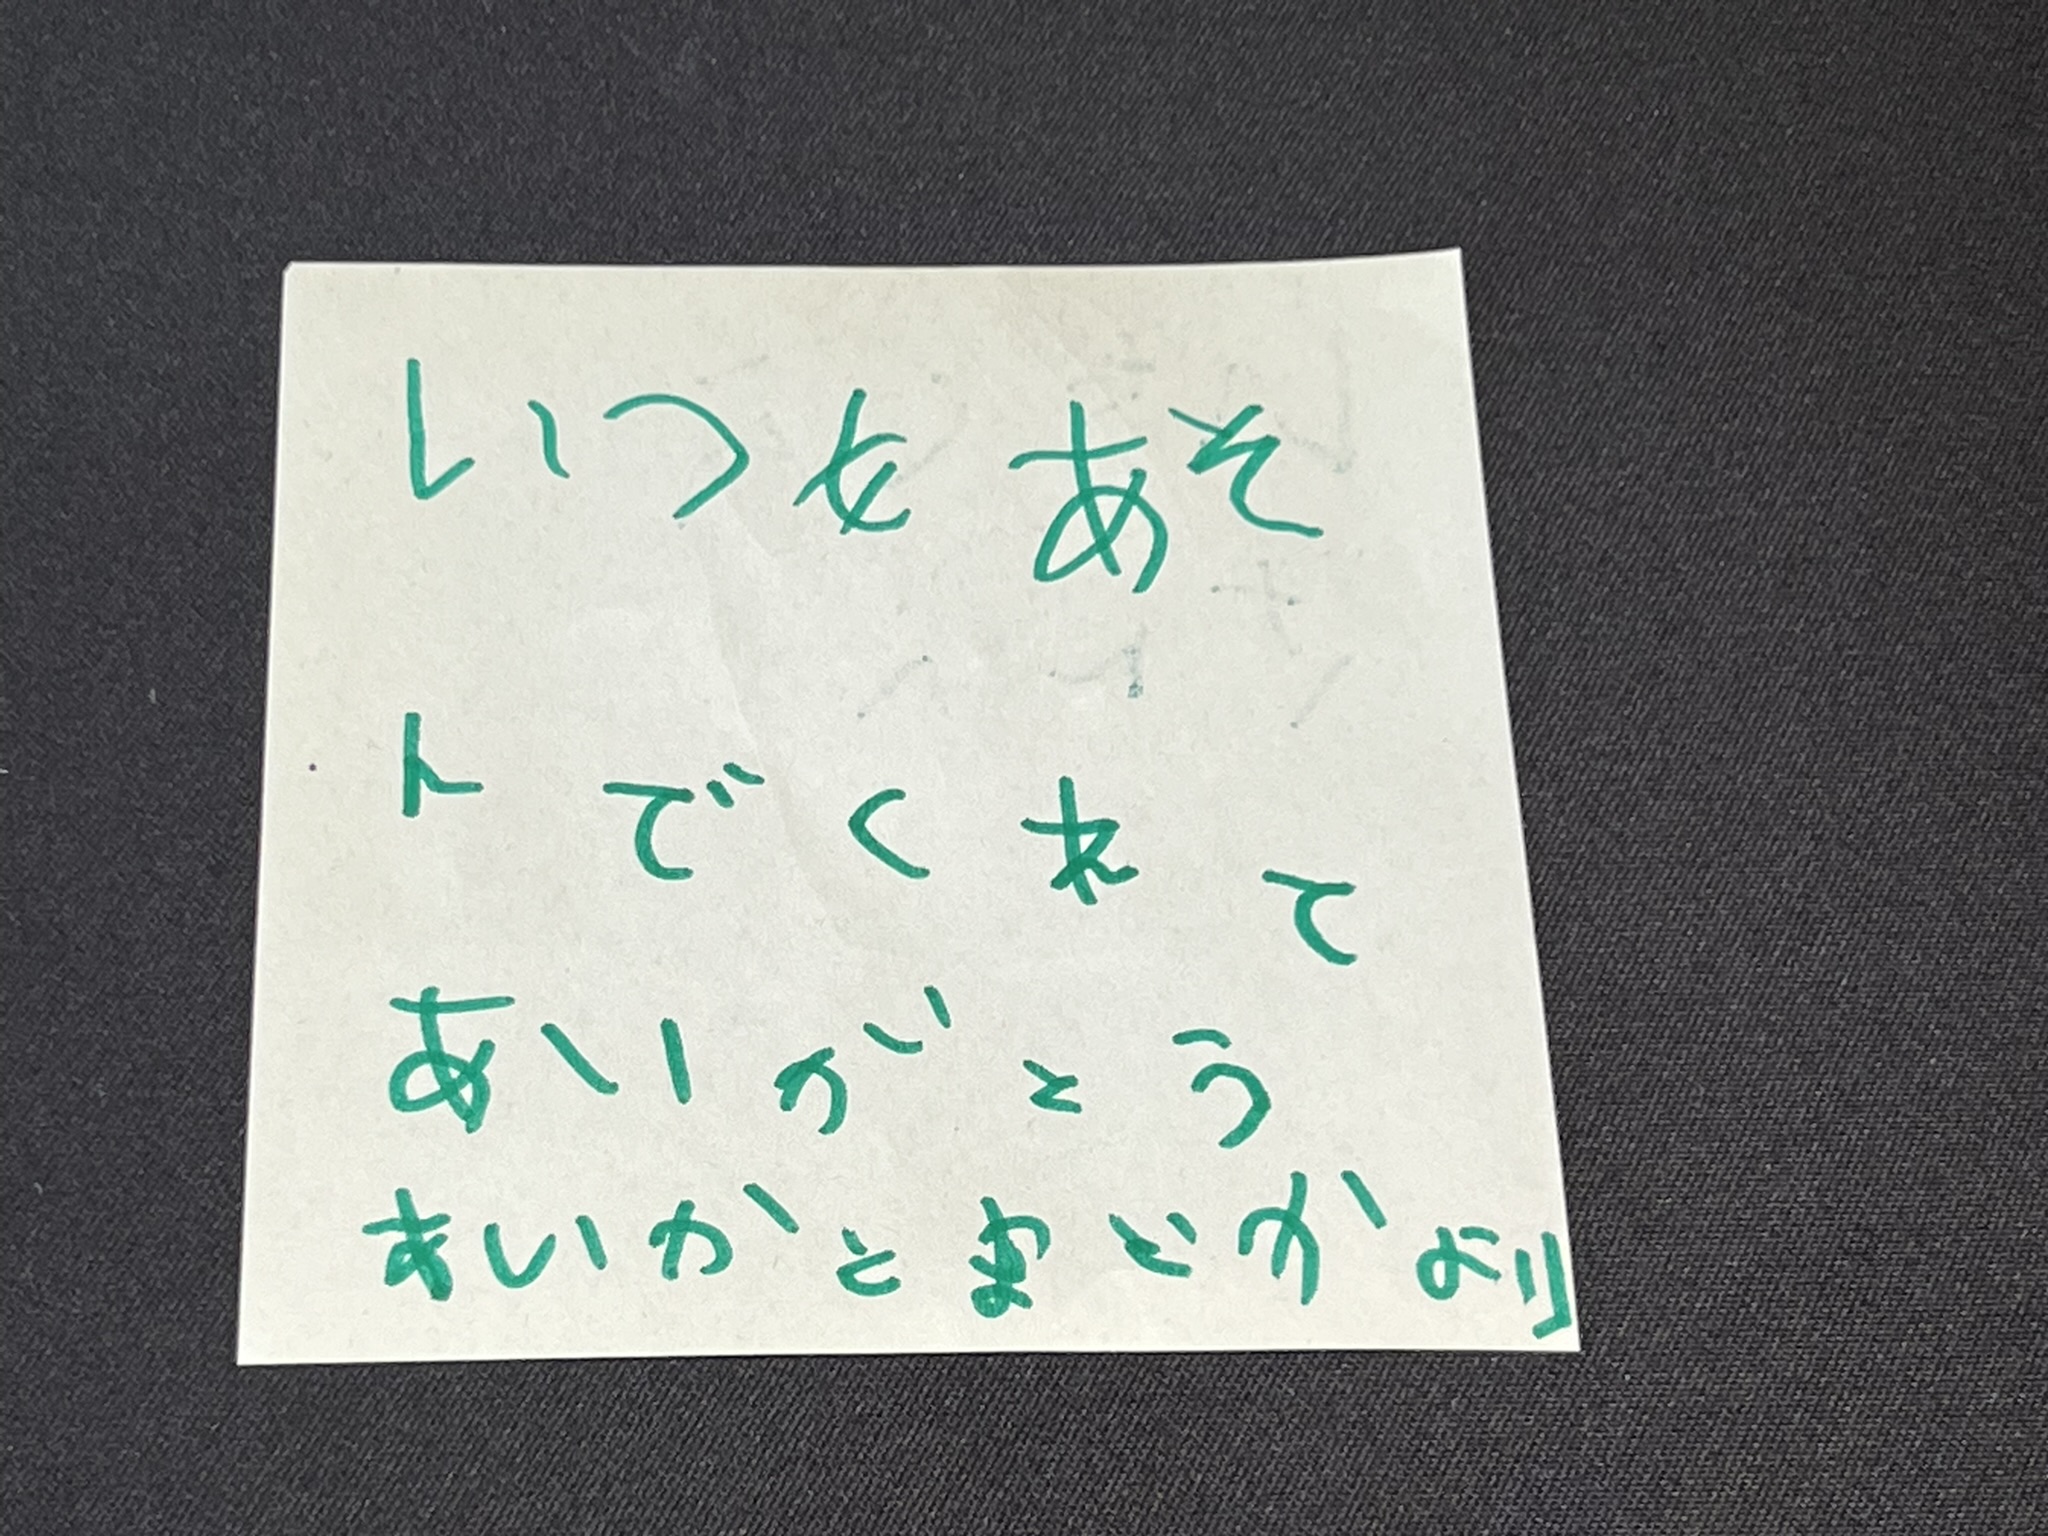 いつもあそ
んでくれて
ありがとう
あいかとまどかより